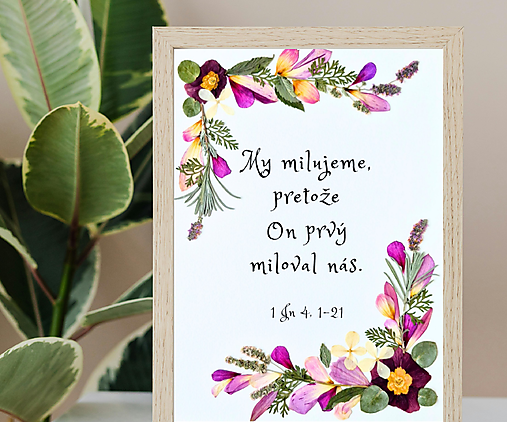 My milujeme,
pretože
On prvý
miloval nás.
1 Jn 4, 1-21